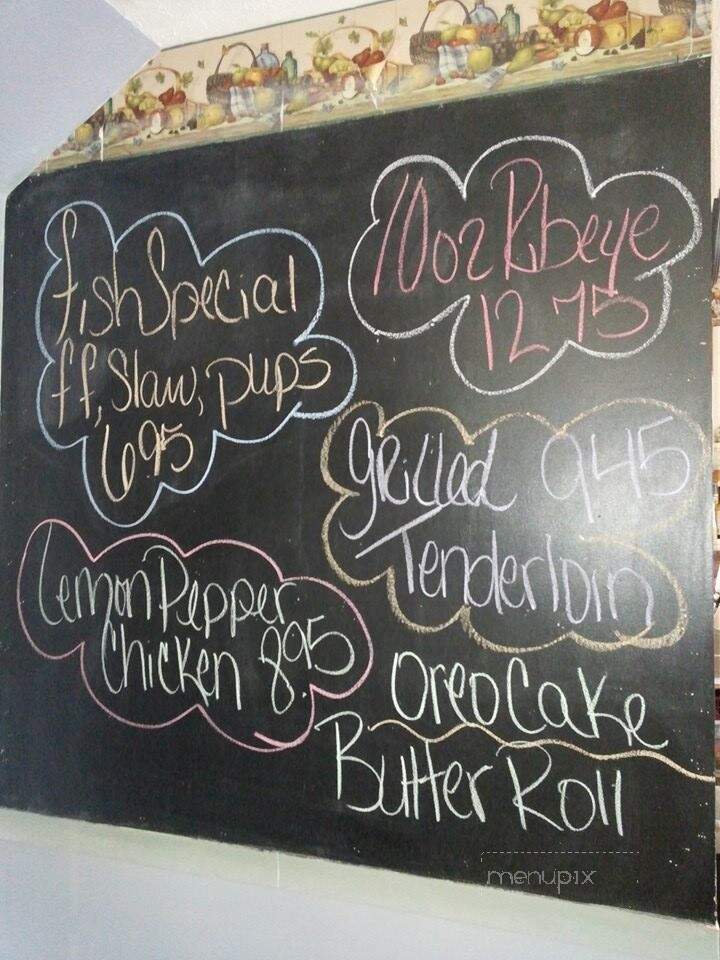 fish Special
ff, Slaw, pups
695
10oz Rbeye
12 75
grilled 945
Tenderloin
Lemon Pepper
Chicken 8.95
Oreo Cake
Butter Roll
menupix